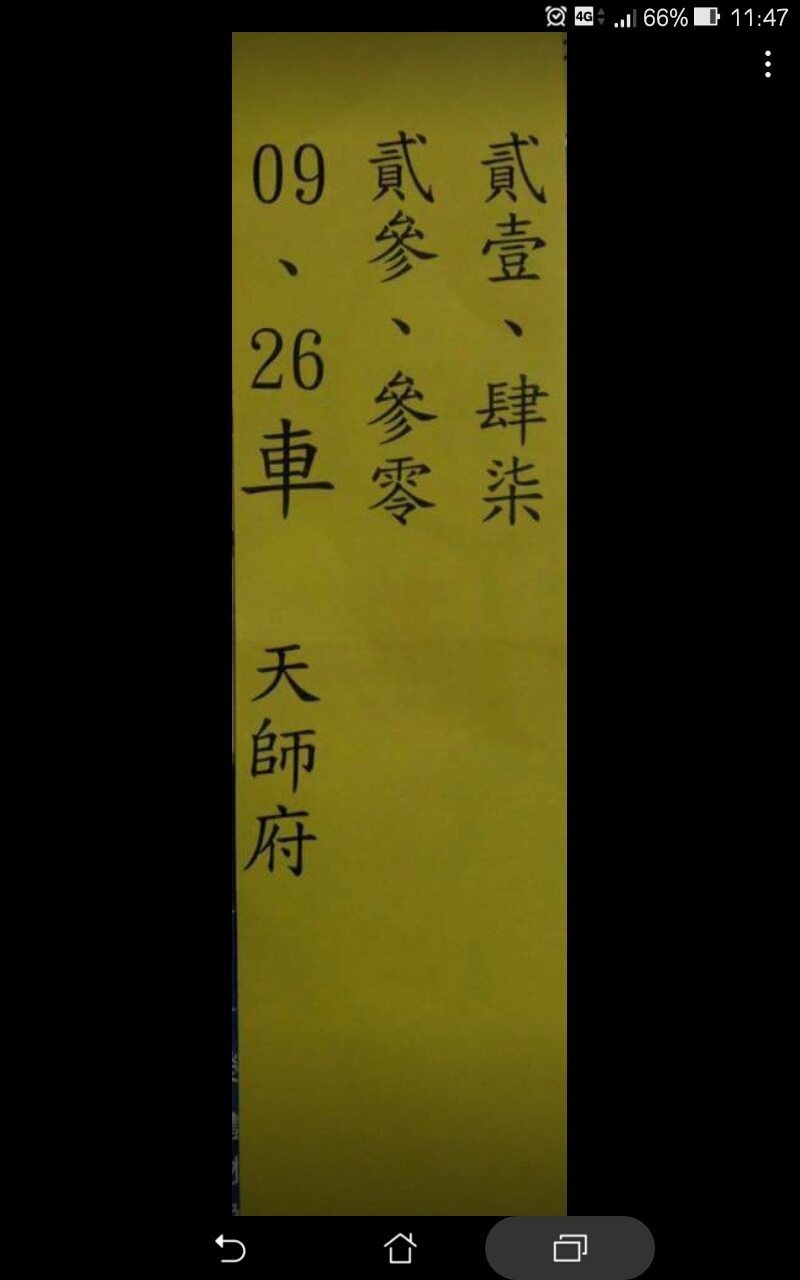 66% 11:47
4G
貳壹、肆柒
貳參、參零
09、26車 天師府